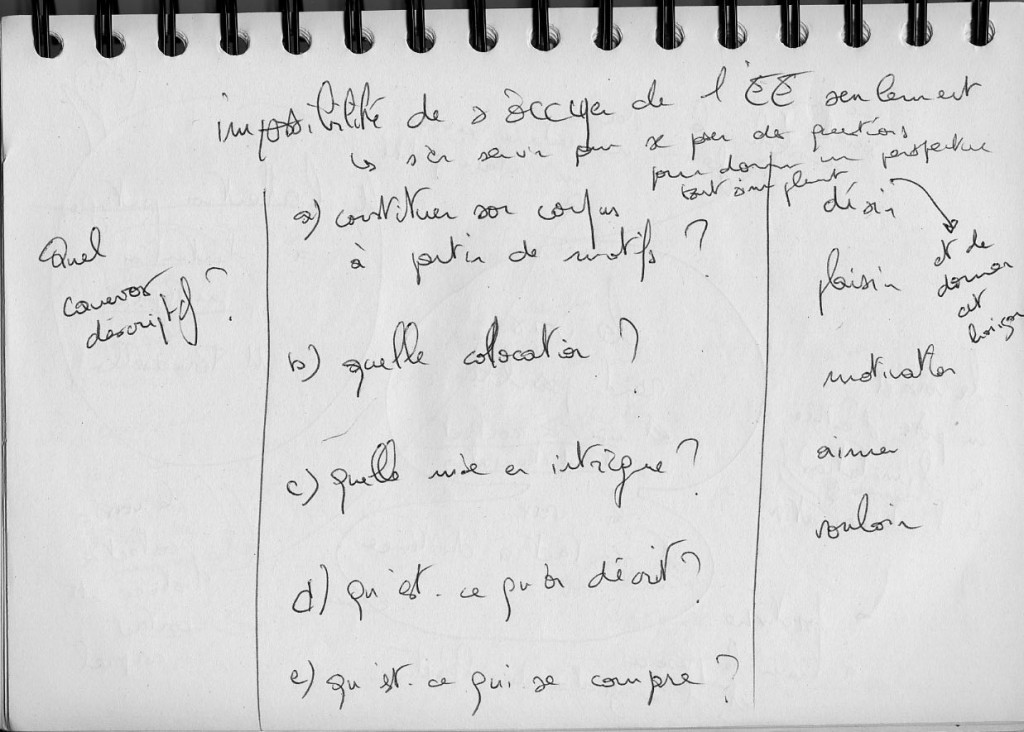 impossibilité de s'occuper de l'EE seulement
↳ s'en servir pour se poser des questions
pour donner une perspective
tout simplement
Quel
canevas
descriptif ?
a) constituer son corpus
à partir de motifs ?
b) quelle colocation ?
c) quelle mise en intrigue ?
d) qu'est-ce qu'on décrit ?
e) qu'est-ce qui se compare ?
désir
plaisir
motivation
aimer
vouloir
et de
donner
cet
horizon